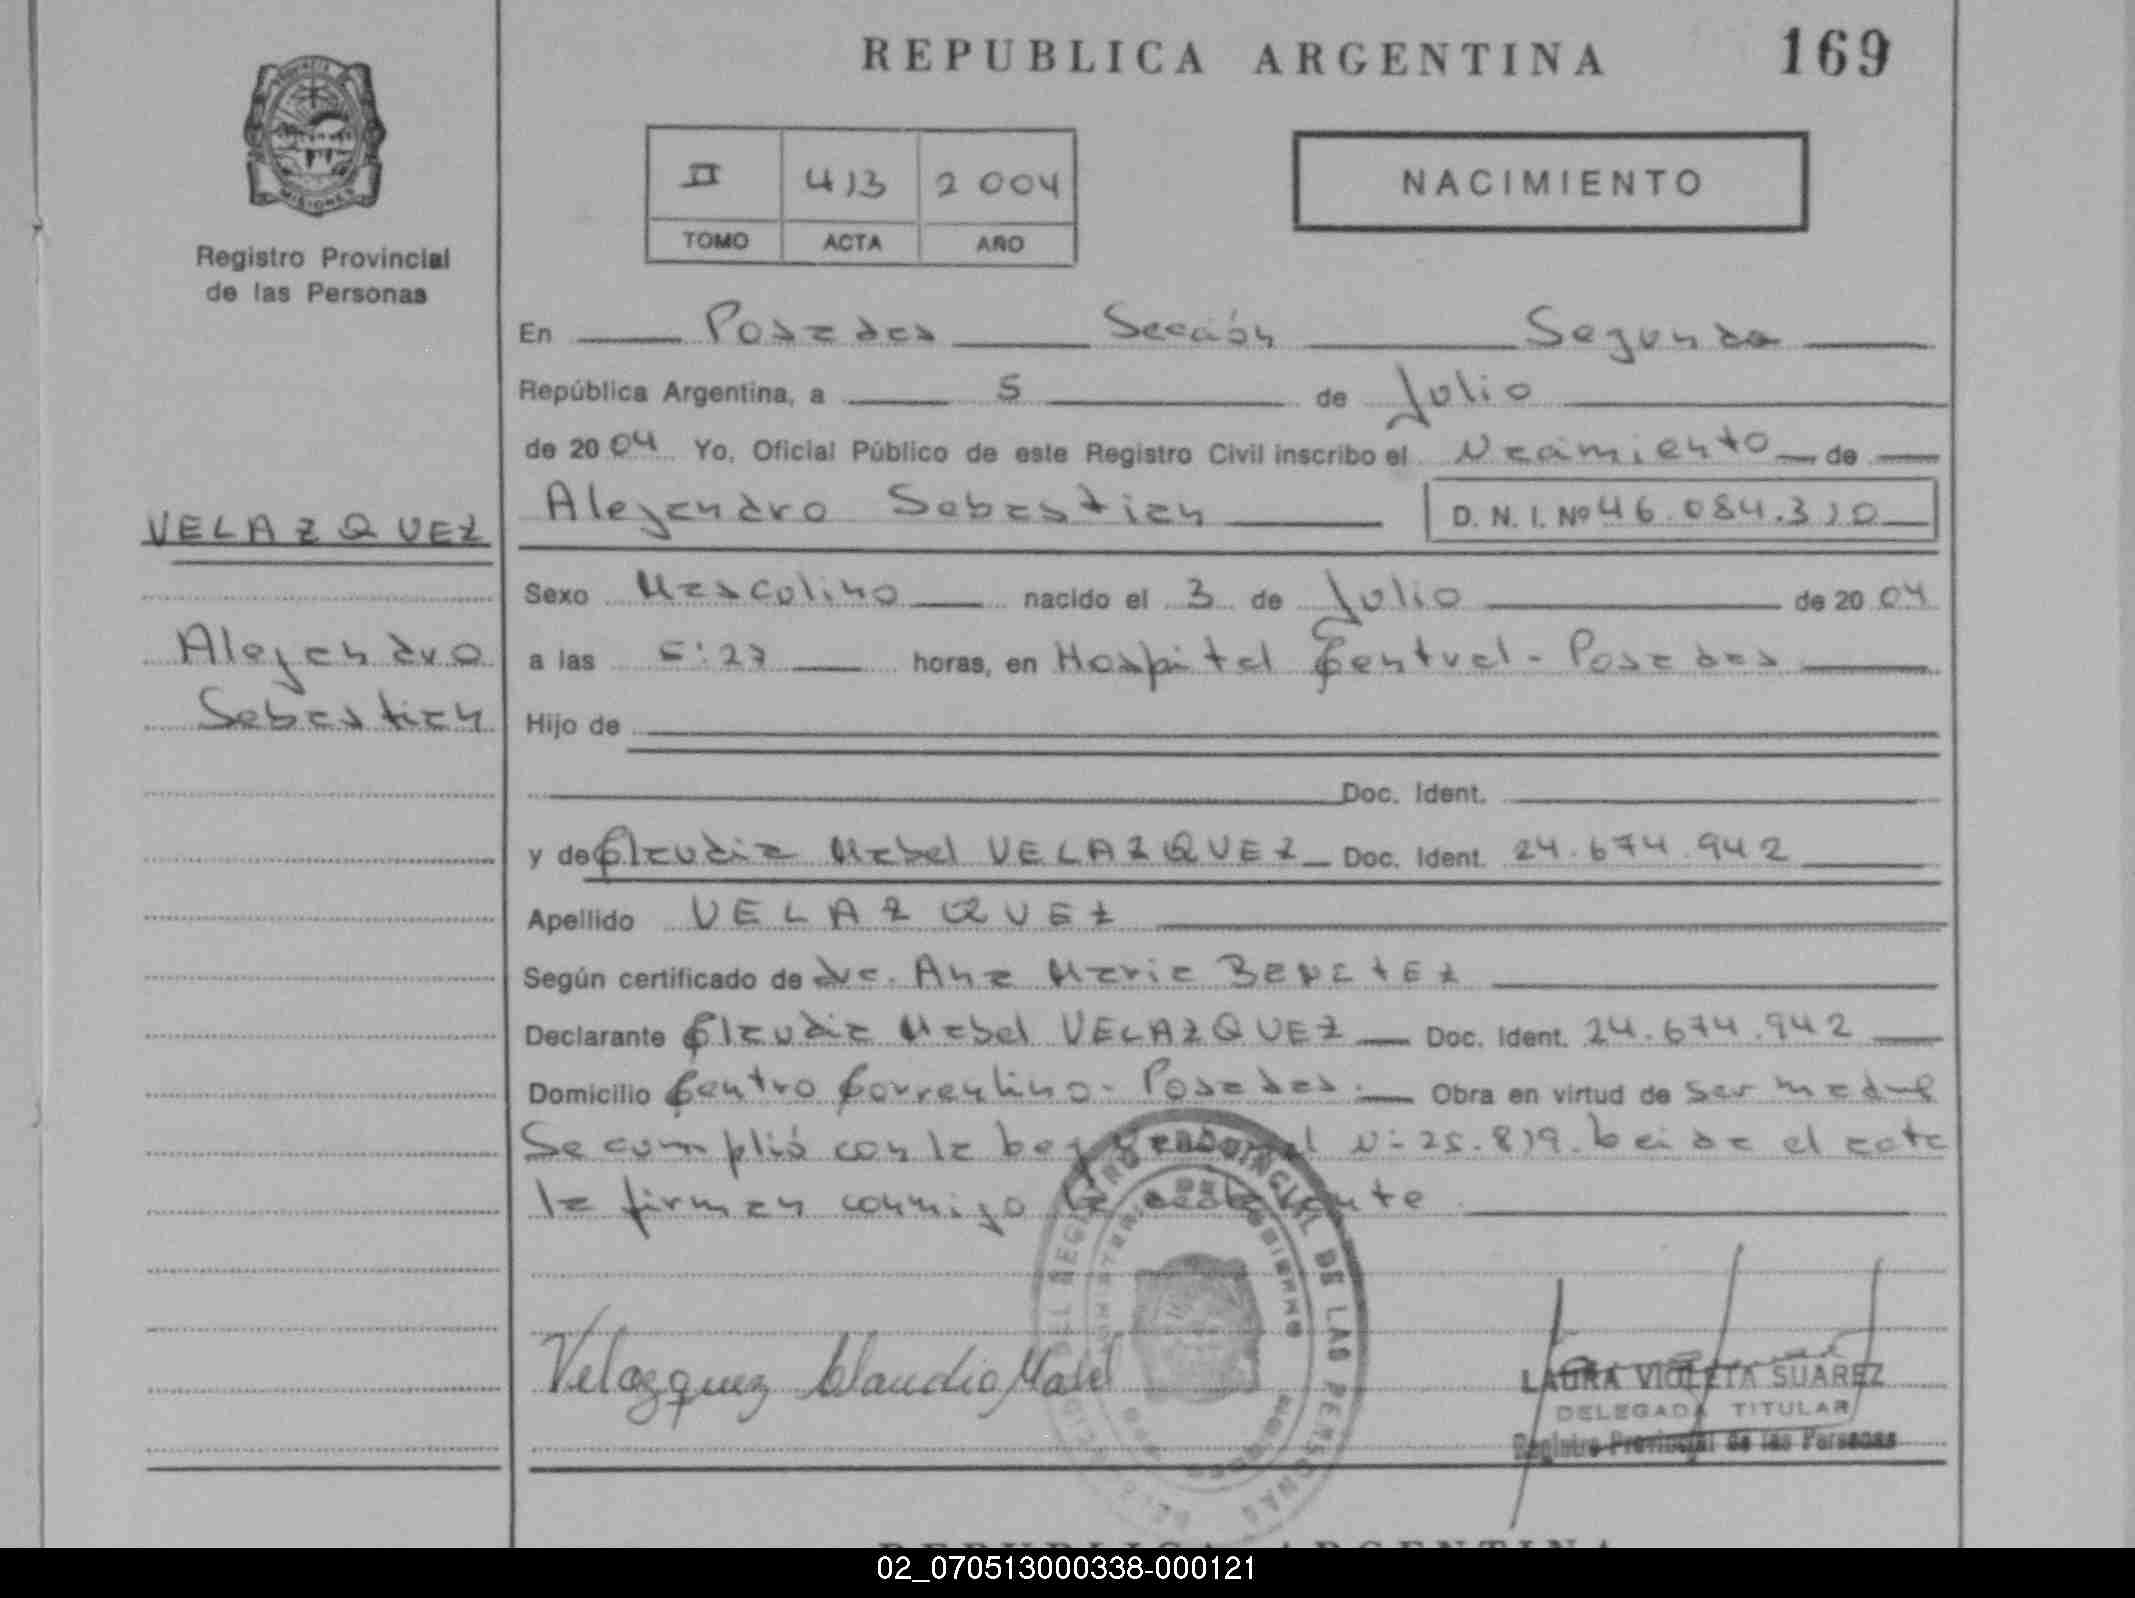 REPUBLICA ARGENTINA 169
PROVINCIA DE
MISIONES
Registro Provincial
de las Personas
II 413 2004
TOMO ACTA AÑO
NACIMIENTO
En Posadas Sección Segunda
República Argentina, a 5 de Julio
de 2004 Yo, Oficial Público de este Registro Civil inscribo el Nacimiento de
VELAZQUEZ
Alejandro Sebastian D. N. I. Nº 46.084.310
Sexo Masculino nacido el 3 de Julio de 2004
Alejandro
a las 6:27 horas, en Hospital Central - Posadas
Sebastian
Hijo de
Doc. Ident.
y de Claudia Mabel VELAZQUEZ Doc. Ident. 24.674.942
Apellido VELAZQUEZ
Según certificado de dra. Ana Maria BENITEZ
Declarante Claudia Mabel VELAZQUEZ Doc. Ident. 24.674.942
Domicilio Centro Correntino - Posadas. Obra en virtud de ser madre
Se cumplió con la Ley Nacional Nº 25.819. Leida el acta
la firman conmigo la declarante
DEL REGISTRO PROVINCIAL DE LAS PERSONAS
MINISTERIO DE GOBIERNO
MISIONES
Velazquez Claudia Mabel
LAURA VIOLETA SUAREZ
DELEGADA TITULAR
Registro Provincial de las Personas
REPUBLICA ARGENTINA
02_070513000338-000121